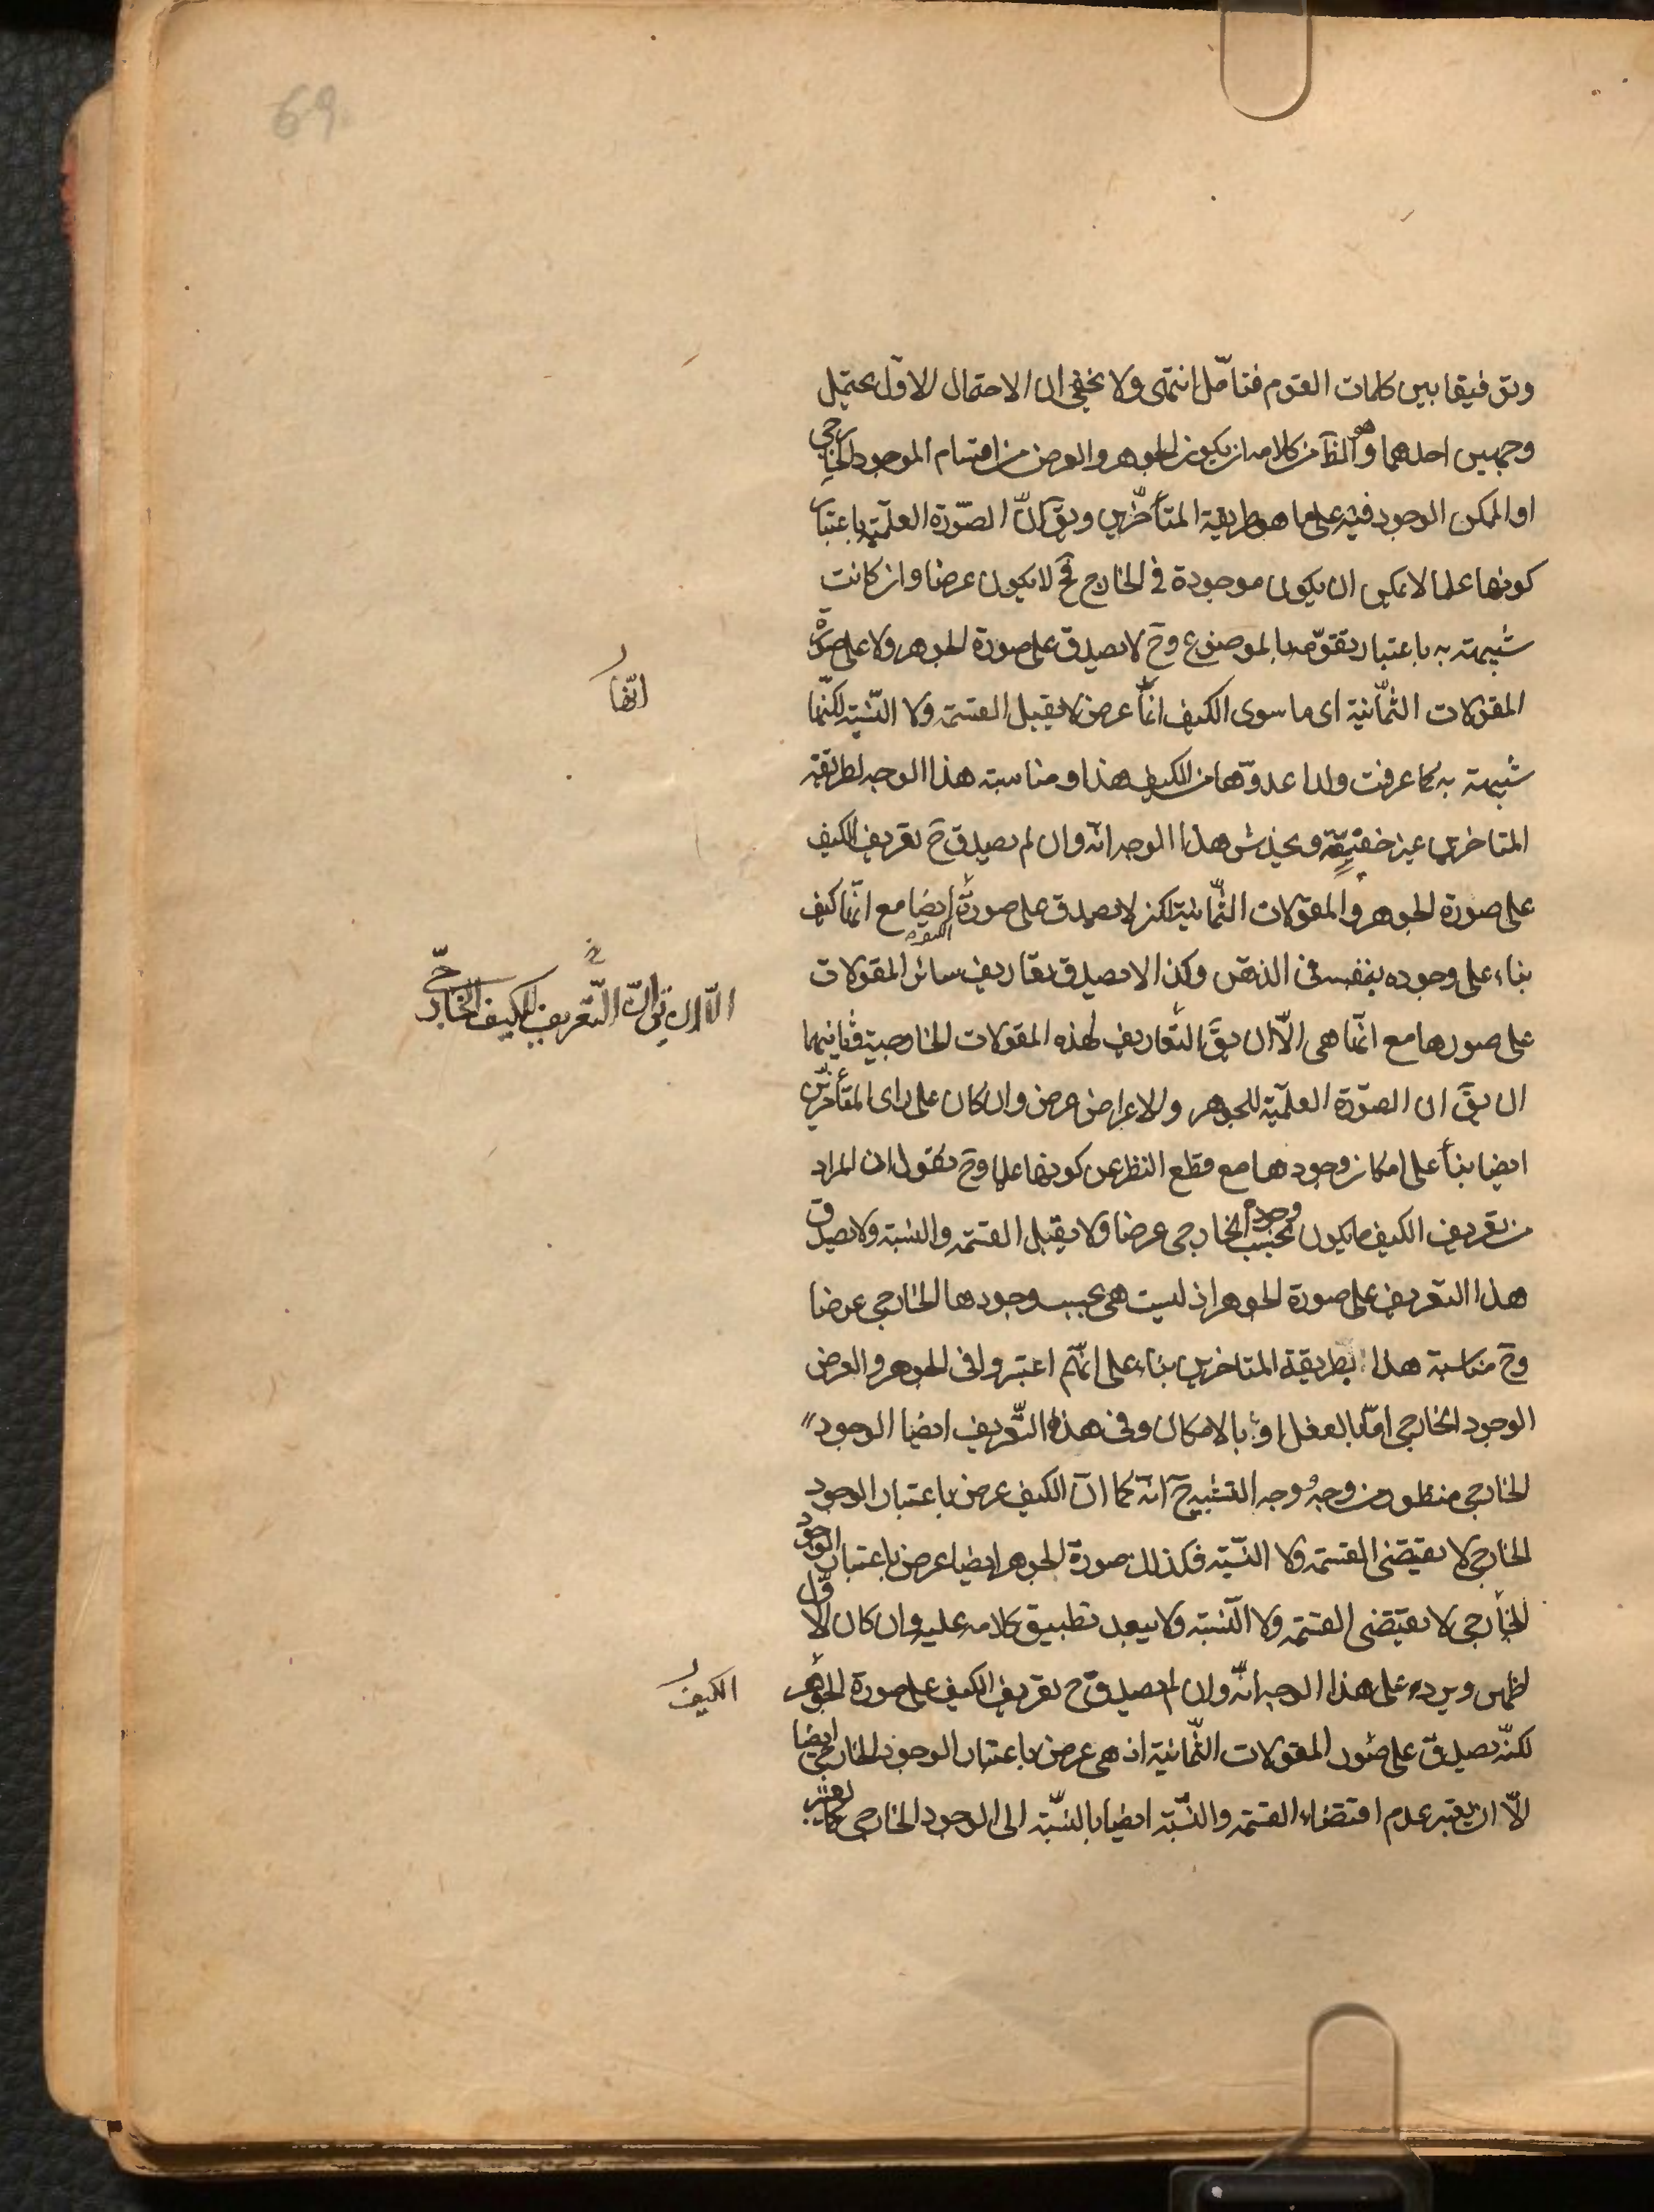 69
وتوفيقا بين كلمات القوم فتأمّل انتهى ولا يخفى ان الاحتمال الاوّل يحتمل
وجهين احدهما وهو الظ من كلامه ان يكون الجوهر والعرض من اقسام الموجود الخارجى
او الممكن الوجود فيه على ما هو طريقة المتأخّرين ويق انّ الصّورة العلميّة باعتبار
كونها علما لا يمكن ان يكون موجودة فى الخارج فح لا يكون عرضا وان كانت
شبيهة به باعتبار تقوّمها بالموضوع وح لا يصدق على صورة الجوهر ولا على صورة
المقولات الثّمانية اى ما سوى الكيف انّها عرض لا يقبل القسمة ولا النّسبة لكنّها
انّها
شبيهة به كما عرفت ولذا عدوّها من الكيف هذا ومناسبة هذا الوجه لطريقة
المتاخرين غير خفيّة ويخدش هذا الوجه انّه وان لم يصدق ح تعريف الكيف
على صورة الجوهر والمقولات الثّمانية لكن لا يصدق على صورة الكيف ايضا مع انّها كيف
بناء على وجوده بنفسه فى الذهن وكذا لا يصدق تعاريف سائر المقولات
الّا ان يق انّ التّعريف للكيف الخارجىّ
على صورها مع انّها هى الّا ان يق التّعاريف لهذه المقولات الخارجية وثانيهما
ان يق ان الصّورة العلميّة للجوهر والاعراض عرض وان كان على راى المتأخّرين
ايضا بناء على امكان وجودها مع قطع النظر عن كونها علما وح نقول ان المراد
من تعريف الكيف ما يكون بحسب وجوده الخارجى عرضا ولا يقبل القسمة والنسبة ولا يصدق
هذا التعريف على صورة الجوهر اذ ليست هى بحسب وجودها الخارجى عرضا
وح مناسبة هذا بطريقة المتاخرين بناء على انّهم اعتبروا فى الجوهر والعرض
الوجود الخارجى امّا بالفعل او بالامكان وفى هذا التّعريف ايضا الوجود
الخارجى منظور من وجه ووجه التشبيه ح انّه كما انّ الكيف عرض باعتبار الوجود
الخارجى لا يقتضى القسمة ولا النّسبة فكذلك صورة الجوهر ايضا عرض باعتبار الوجود
الخارجى لا يقتضى القسمة ولا النّسبة ولا يبعد تطبيق كلامه عليه وان كان الاوّل
اظهر ويرد على هذا الوجه انّه وان لم يصدق ح تعريف الكيف على صورة الجوهر
الكيف
لكنّه يصدق على صور المقولات الثّمانية اذ هى عرض باعتبار الوجود الخارجى ايضا
الّا ان يعتبر عدم اقتضاء القسمة والنّسبة ايضا بالنّسبة الى الوجود الخارجى كما